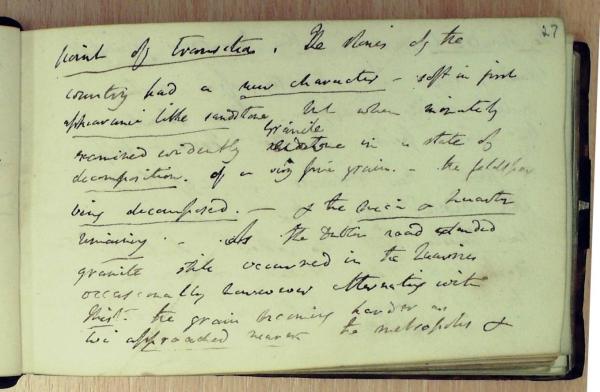 27
point of transition. The stones of the
country had a new character - soft in first
appearance like sandstone but when minutely
examined evidently granite in a state of
decomposition. of a very fine grain. - the feldspar
being decomposed. - & the mica & quartz
remaining - As the Dublin road
granite still occurred in the quarries
occasionally however alternating with
schist. the grain becoming harder as
we approached nearer the metropolis &